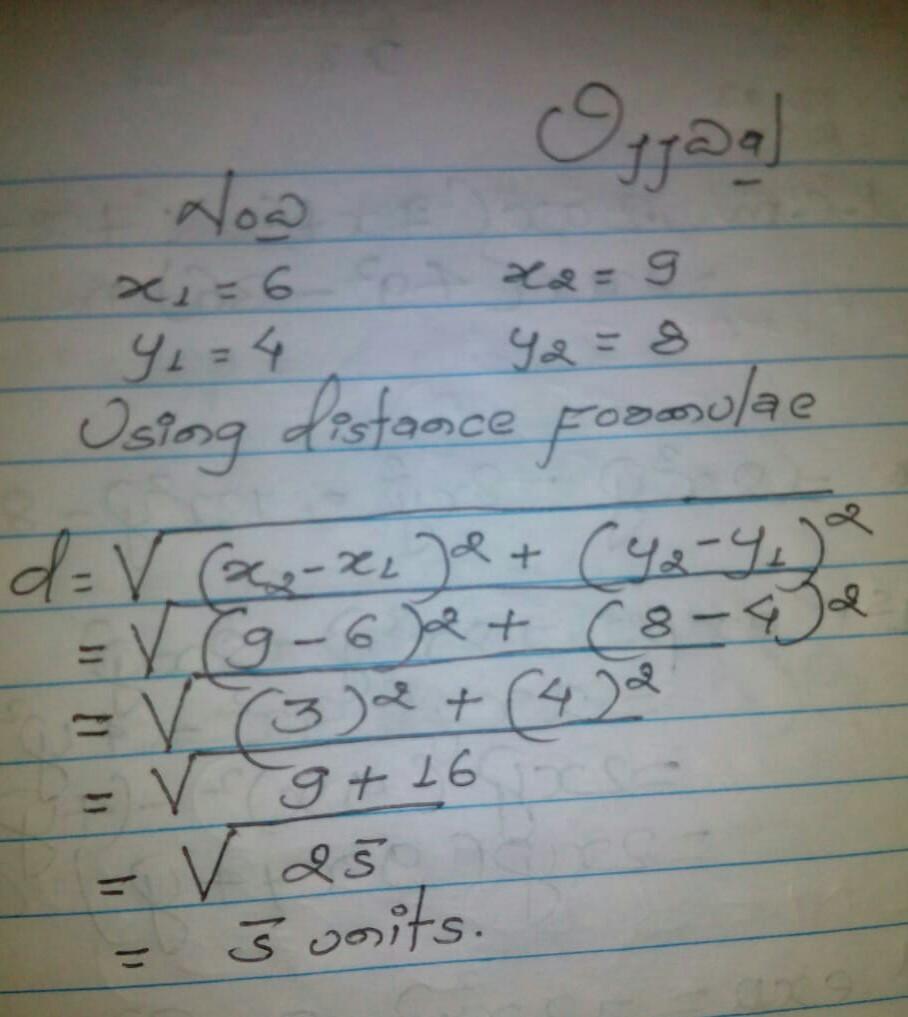 Ujjwal
Now
x₁ = 6 x₂ = 9
y₁ = 4 y₂ = 8
Using distance Formulae
d = √(x₂ - x₁)² + (y₂ - y₁)²
= √(9 - 6)² + (8 - 4)²
= √(3)² + (4)²
= √9 + 16
= √25
= 5 units.